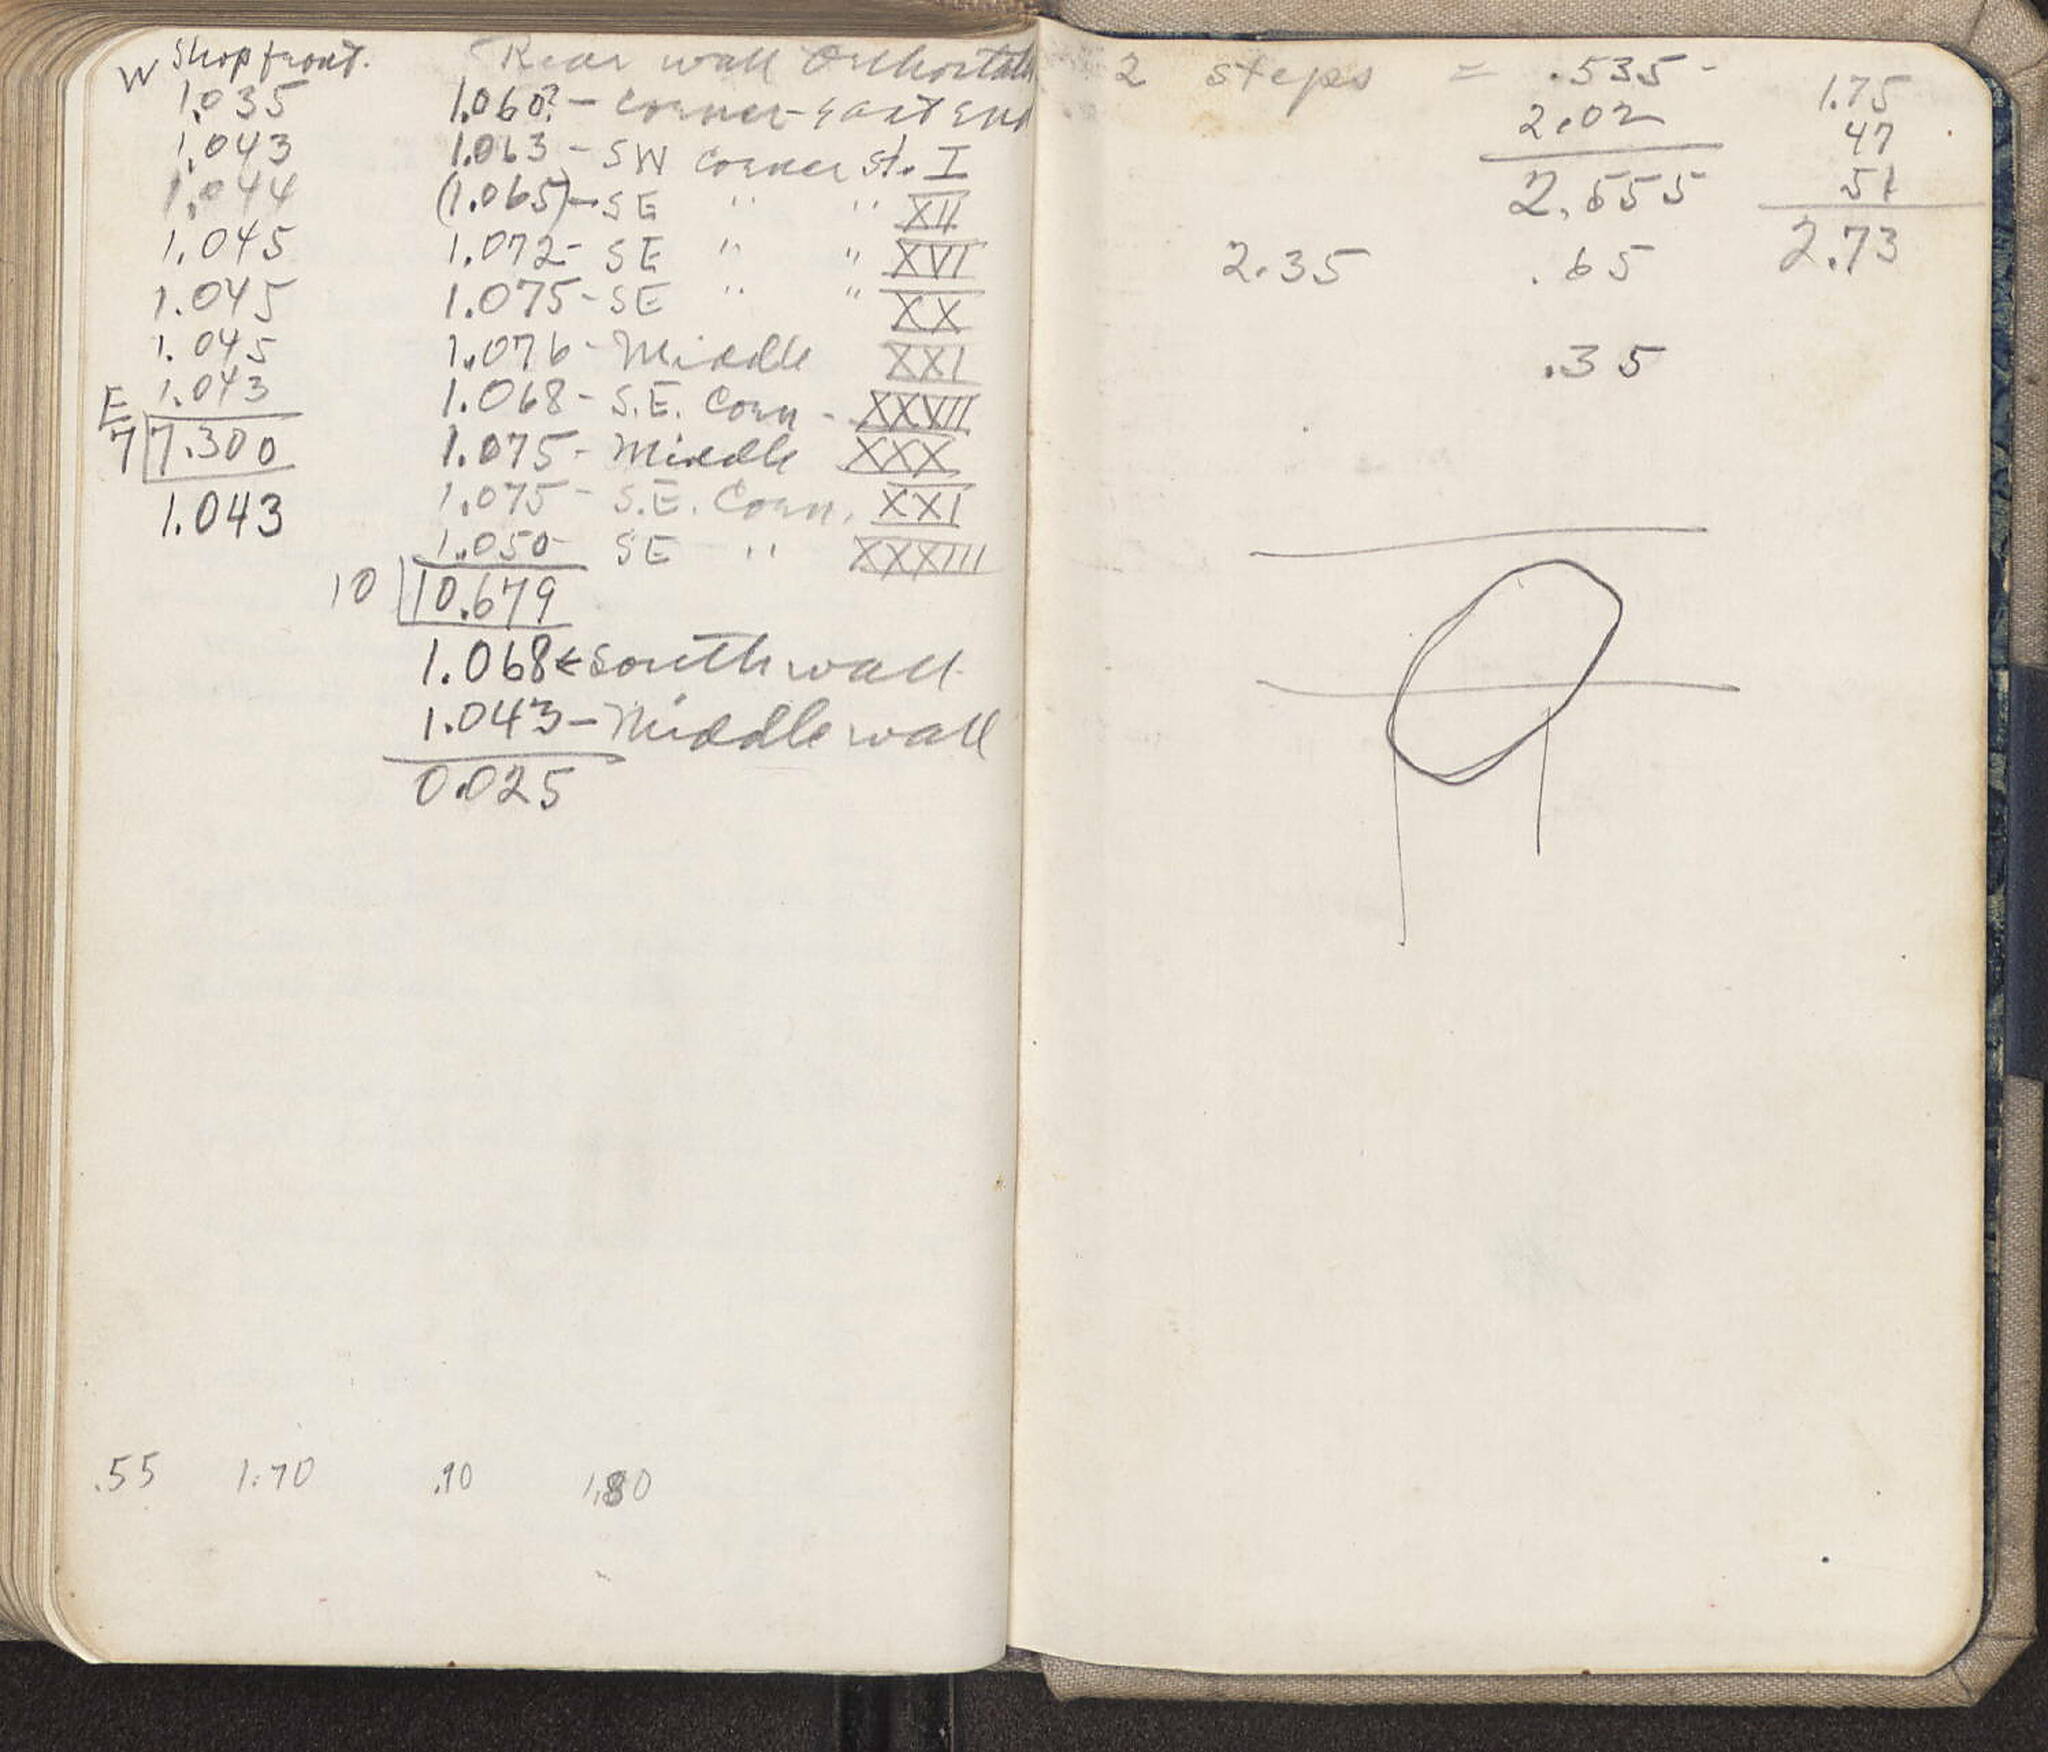 W Shopfront.
1.035
1.043
1.044
1.045
1.045
1.045
E 1.043
7 7.300
1.043
Rear wall Orthostat
1.060? - corner - East End
1.063 - SW corner St. I
(1.065) - SE " " XII
1.072 - SE " " XVI
1.075 - SE " " XX
1.076 - Middle XXI
1.068 - S.E. Corn - XXVII
1.075 - Middle XXX
1.075 - S.E. Corn. XXI
1.050 SE " XXXIII
10 10.679
1.068 ← South wall
1.043 - Middle wall
0.025
.55 1.70 .90 1.80
2 steps = .535
2.02
2.555
2.35 .65
.35
1.75
47
51
2.73